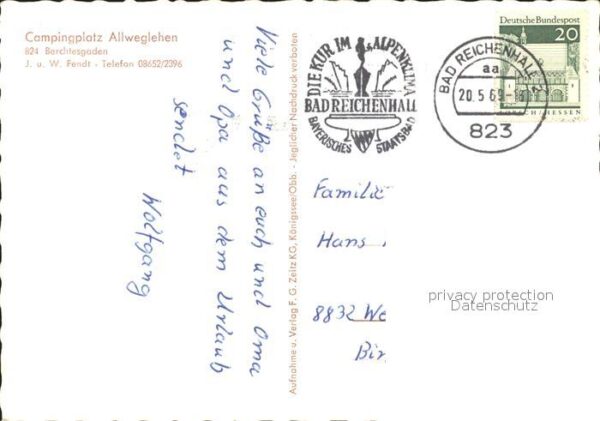 Campingplatz Allweglehen
824 Berchtesgaden
J. u. W. Fendt - Telefon 08652/2396
Viele Grüße an euch und Oma
und Opa aus dem Urlaub
sendet
Wolfgang
Aufnahme u. Verlag F. G. Zeitz KG, Königssee/Obb. - Jeglicher Nachdruck verboten
DIE KUR IM ALPENKLIMA
BAD REICHENHALL
BAYERISCHES STAATSBAD
BAD REICHENHALL
aa
20.5.69
823
Deutsche Bundespost
20
LORSCH/HESSEN
Familie
Hans
8832 We
Bir
privacy protection
Datenschutz